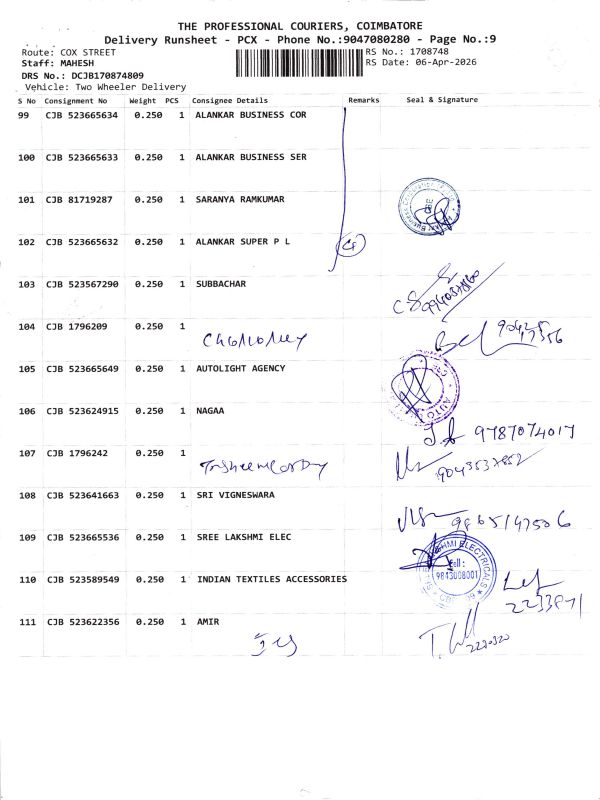 THE PROFESSIONAL COURIERS, COIMBATORE
Delivery Runsheet - PCX - Phone No.:9047080280 - Page No.:9
Route: COX STREET
RS No.: 1708748
Staff: MAHESH
RS Date: 06-Apr-2026
DRS No.: DCJB170874809
Vehicle: Two Wheeler Delivery
S No Consignment No Weight PCS Consignee Details Remarks Seal & Signature
99 CJB 523665634 0.250 1 ALANKAR BUSINESS COR
100 CJB 523665633 0.250 1 ALANKAR BUSINESS SER
101 CJB 81719287 0.250 1 SARANYA RAMKUMAR
102 CJB 523665632 0.250 1 ALANKAR SUPER P L
103 CJB 523567290 0.250 1 SUBBACHAR
104 CJB 1796209 0.250 1
105 CJB 523665649 0.250 1 AUTOLIGHT AGENCY
106 CJB 523624915 0.250 1 NAGAA
9787074017
107 CJB 1796242 0.250 1
108 CJB 523641663 0.250 1 SRI VIGNESWARA
109 CJB 523665536 0.250 1 SREE LAKSHMI ELEC
Cell :
9843008001
110 CJB 523589549 0.250 1 INDIAN TEXTILES ACCESSORIES
111 CJB 523622356 0.250 1 AMIR